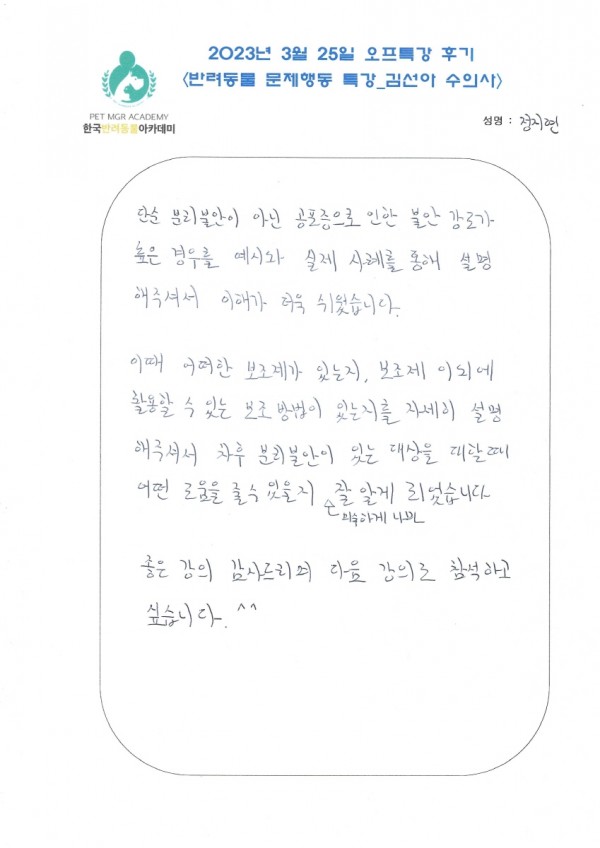 2023년 3월 25일 오프특강 후기
<반려동물 문제행동 특강_김선아 수의사>
PET MGR ACADEMY
한국반려동물아카데미
성명 : 정지현
단순 분리불안이 아닌 공포증으로 인한 불안 강도가
높은 경우를 예시와 실제 사례를 통해 설명
해주셔서 이해가 더욱 쉬웠습니다.
이때 어떠한 보조제가 있는지, 보조제 이외에
활용할 수 있는 보조 방법이 있는지를 자세히 설명
해주셔서 차후 분리불안이 있는 대상을 대할때
어떤 도움을 줄 수 있을지 잘 알게 되었습니다
좋은 강의 감사드리며 다음 강의도 참석하고
싶습니다. ^^